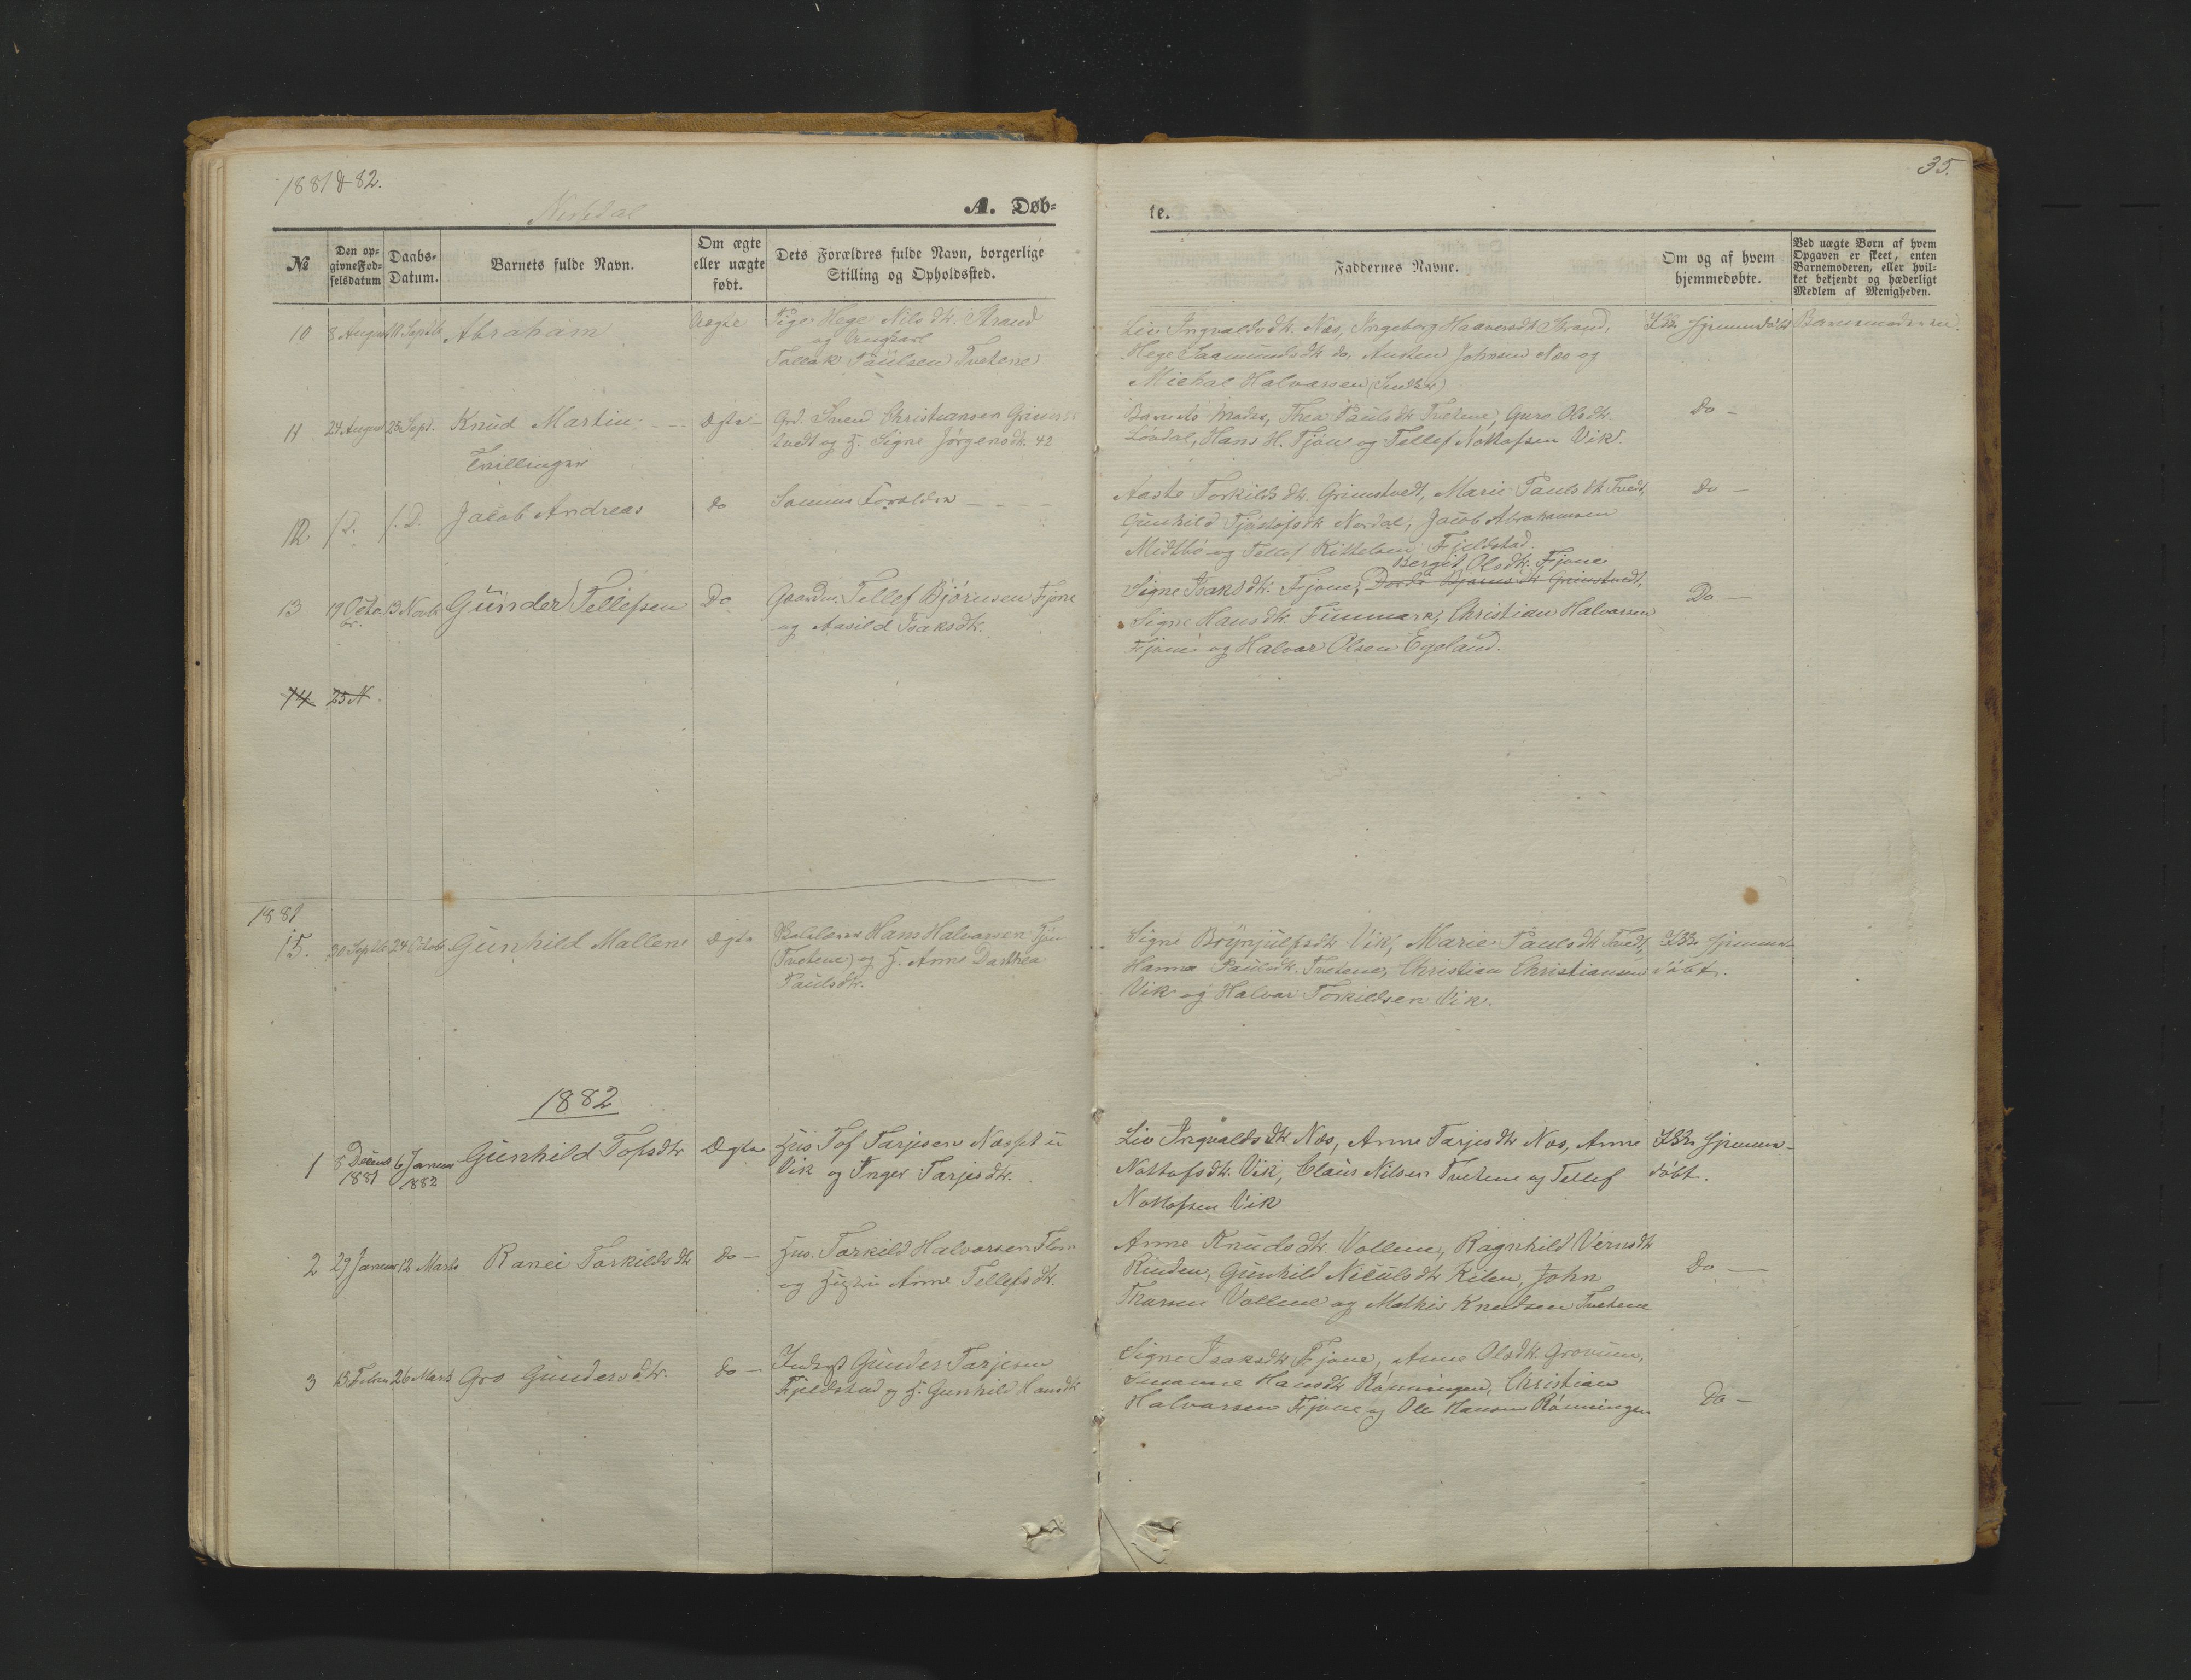 1881 & 82.
35.
Nisedal
A. Døb=
te.
№
Den op=
givne Fød=
selsdatum
Daabs=
Datum.
Barnets fulde Navn.
Om ægte
eller uægte
født.
Dets Forældres fulde Navn, borgerlige
Stilling og Opholdssted.
Faddernes Navne.
Om og af hvem
hjemmedøbte.
Ved uægte Børn af hvem
Opgaven er skeet, enten
Barnemoderen, eller hvil=
ket bekjendt og hæderligt
Medlem af Menigheden.
10 8 August 11 Septb Abraham Uægte Pige Hege Nilsdtr. Strand
og Ungkarl
Tallak Paulsen Tvetene
Liv Ingvaldsdtr. Næs, Ingeborg Haaversdtr Strand,
Hege Saamundsdtr do, Austen Johnsen Næs og
Michal Halvorsen
Ikke hjemmedøbt
Barnemoderen.
11 24 August 25 Sept. Knud Martin Ægte Grd. Svend Christiansen Grims
tvedt og H. Signe Jørgensdtr. 42
Tvillinger
Barnets Moder, Thea Paulsdtr Tvetene, Guro Olsdtr.
Løvdal, Hans H. Fjøne og Tellef Nottofsen Vik.
Do —
12 f. D. f. D. Jacob Andreas do Samme Forældre
Aaste Torkildsdtr. Grimstvedt, Marie Paulsdtr Tvedt,
Gunhild Fjøstofsdtr Nordal, Jacob Abrahamsen
Midtbø og Tellef Kittelsen Fjeldstad.
do —
13 19 Octo
br. 13 Novb Gunder Tellefsen Do Gaardm. Tellef Bjørnsen Fjone
og Aasild Isaksdtr.
Bergit Olsdtr. Fjone
Signe Isaksdtr. Fjone, Dorde Bjørnsdtr Grimstvedt,
Signe Hansdtr. Finmark, Christian Halvorsen
Fjone og Halvor Olsen Egeland.
Do —
14 25 N.
1881
15. 30 Septb 24 Octob Gunhild Mallene Ægte Skolelærer Hans Halvorsen Fjøn
(Tvetene) og H. Anne Darthea
Paulsdtr.
Signe Brynjulfsdtr Vik, Marie Paulsdtr Tvedt,
Hanna Paulsdtr. Tvetene, Christian Christiansen
Vik og Halvor Torkildsen Vik.
Ikke hjemme-
døbt.
1882
1 8 Decemb
1881 6 Januar
1882 Gunhild Tofsdtr Ægte Hus. Tof Tarjesen Næsset u
Vik og Inger Tarjesdtr.
Liv Ingvaldsdtr Næs, Anne Tarjesdtr Næs, Anne
Nottofsdtr. Vik, Claus Nilsen Tvetene og Tellef
Nottofsen Vik
Ikke hjemme-
døbt.
2 29 Januar 12 Marts Ranei Torkildsdtr do — Hus. Torkild Halvorsen
og Hustru Anne Tellefsdtr.
Anne Knudsdtr. Vollene, Ragnhild Vernsdtr
Rinden, Gunhild Niculsdtr Kilen, John
Vollene og Mathis Knudsen Tvetene
Do —
3 15 Febr. 26 Marts Gro Gundersdtr. do — Inderst Gunder Tarjesen
Fjeldstad og H. Gunhild Hansdtr
Signe Isaksdtr Fjone, Anne Olsdtr. Grovum,
Susanne Hansdtr Rønningen, Christian
Halvorsen Fjone og Ole Hansen Rønningen
Do —